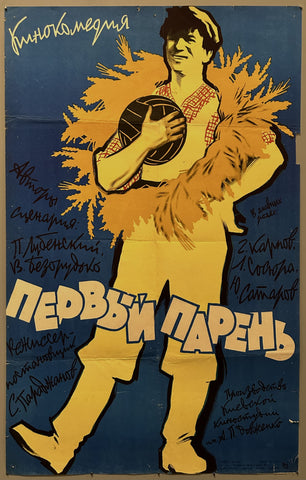 Кинокомедия
Авторы
сценария
П. Лубенский,
В. Безорудько
в главных
ролях:
Г. Карпов
Л. Сосюра
Ю. Сатаров
ПЕРВЫЙ ПАРЕНЬ
Режиссер-
постановщик
С. Параджанов
Производство
Киевской
киностудии
им. А. П. Довженко